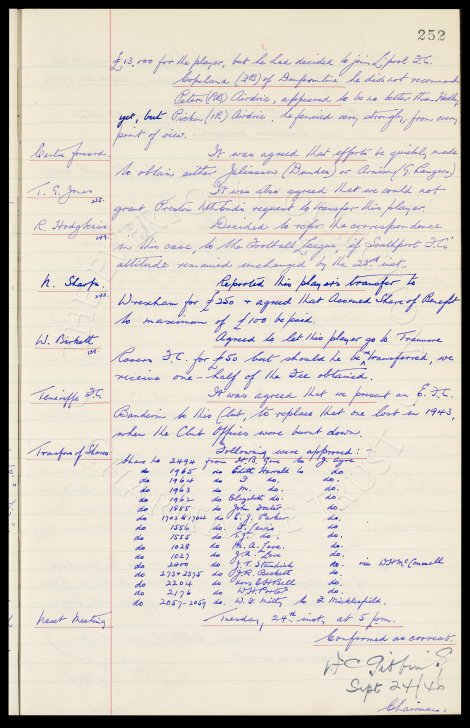 252
£13,000 for the player, but he had decided to join L'pool F.C.
Copeland (3B) of Dunfermline he did not recommend
Peters (RB) Airdrie, appeared to be no better than Hedley,
yet, but Picken (1R) Airdrie, he fancied very strongly, from every
point of view.
Centre forward. It was agreed that efforts be quickly made
to obtain either Juliussen (Dundee) or Arnison (G. Rangers)
T. G. Jones It was also agreed that we could not
grant Preston request to transfer this player.
R. Hodgkiss Decided to refer the correspondence
249.
in this case, to the Football League, if Southport F.C's
attitude remained unchanged by the 23rd inst.
N. Sharp. Reported this player's transfer to
Wrexham for £250 & agreed that Accrued Share of Benefit
to maximum of £100 be paid.
W. Birkett Agreed to let this player go to Tranmere
Rovers F.C. for £50 but should he be re-transferred, we
receive one-half of the Fee obtained.
Teneriffe F.C. It was agreed that we present an E.F.C.
Banderin to this Club, to replace that one lost in 1943,
when the Club Offices were burnt down.
Transfers of Shares Following were approved :-
Share No 2494 from H.B. Gore to J. Eyre
do 1965 do Edith to do.
do 1964 do F. do. do.
do 1963 do M. do. do.
do 1962 do Elizabeth do. do.
do 1855 do John Foster do.
do 1702 & 1704 do E. J. Parker do.
do 1556 do F. Lewis do.
do 1555 do T.J. do. do.
do 1028 do M. A. Love. do.
do 1027 do J.R. Love do.
do 2400 do J.T. Standish do. via W.H. McConnell
do 2374 & 2375 do J.R. Beckett do.
do 2204 do C H Bell do.
do 2176 do W.H. Porter do.
do 2057-2059 do. W. F. Mitty to F. Micklesfield.
Next Meeting Tuesday, 24th inst, at 5 pm.
Confirmed as correct.
W C Gibbins
Sept 24/46
Chairman.